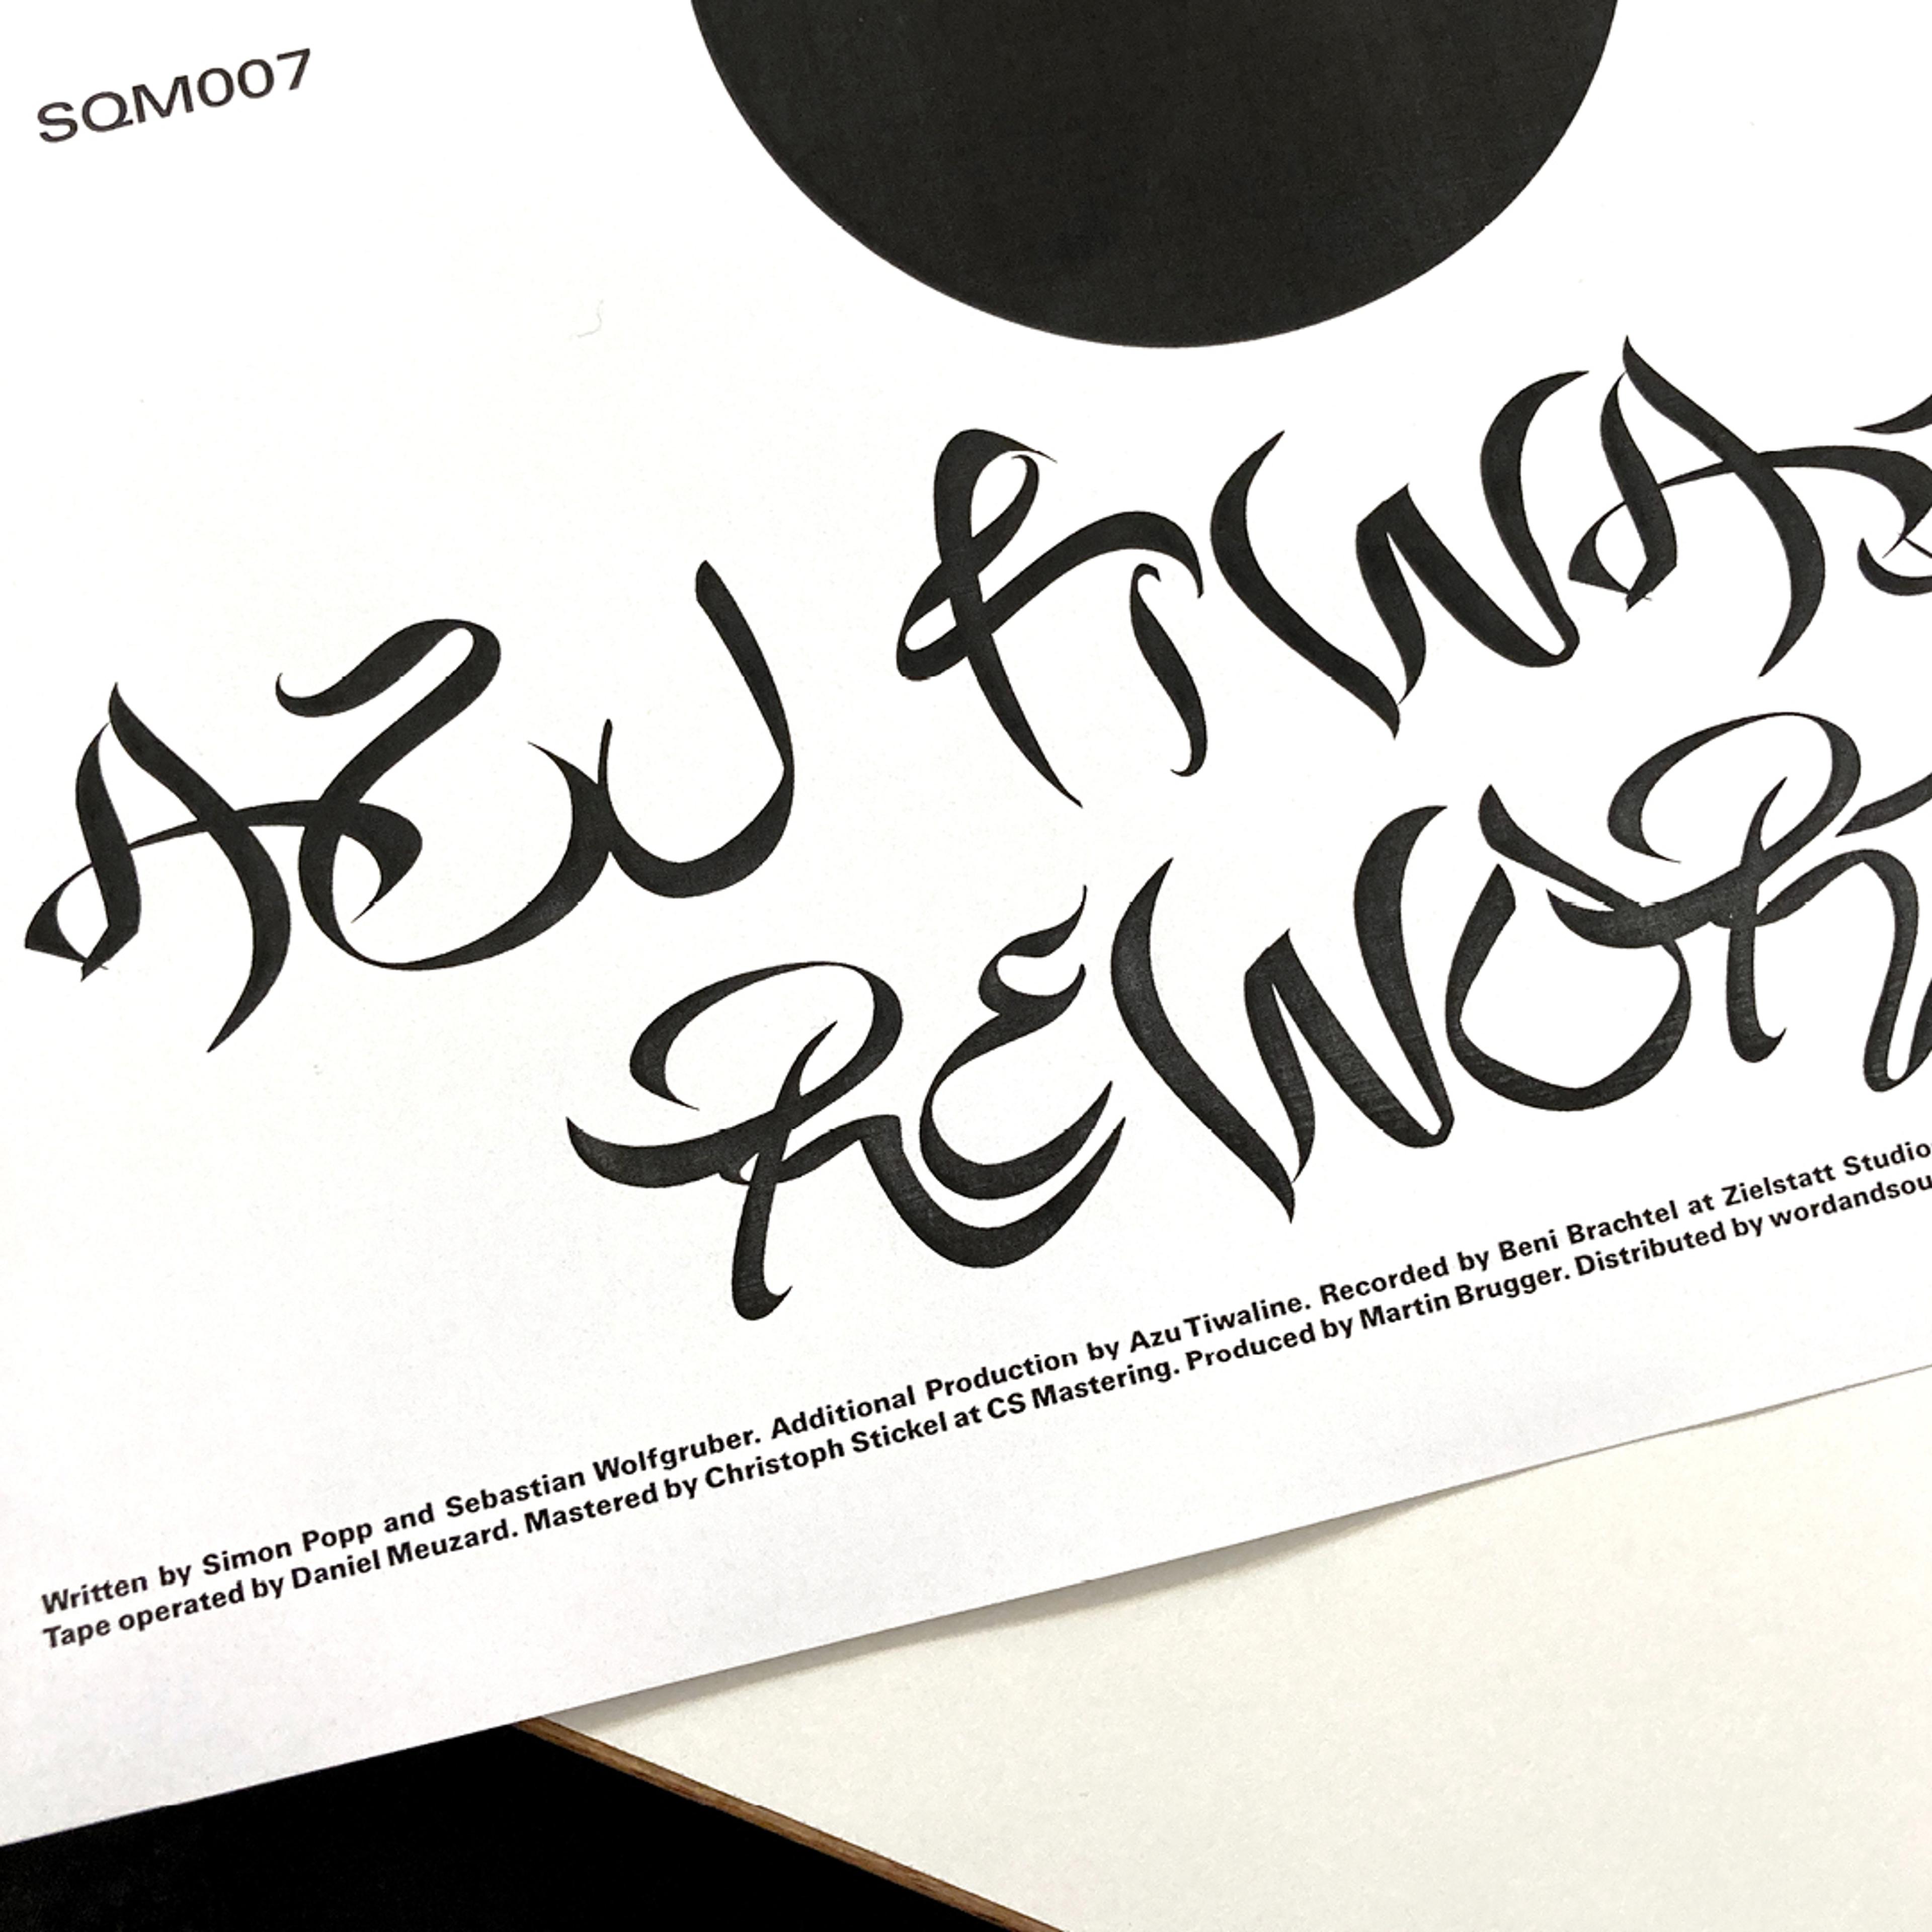 SQM007
AZU TIWA
REWOR
Written by Simon Popp and Sebastian Wolfgruber. Additional Production by Azu Tiwaline. Recorded by Beni Brachtel at Zielstatt Studio
Tape operated by Daniel Meuzard. Mastered by Christoph Stickel at CS Mastering. Produced by Martin Brugger. Distributed by wordandsou